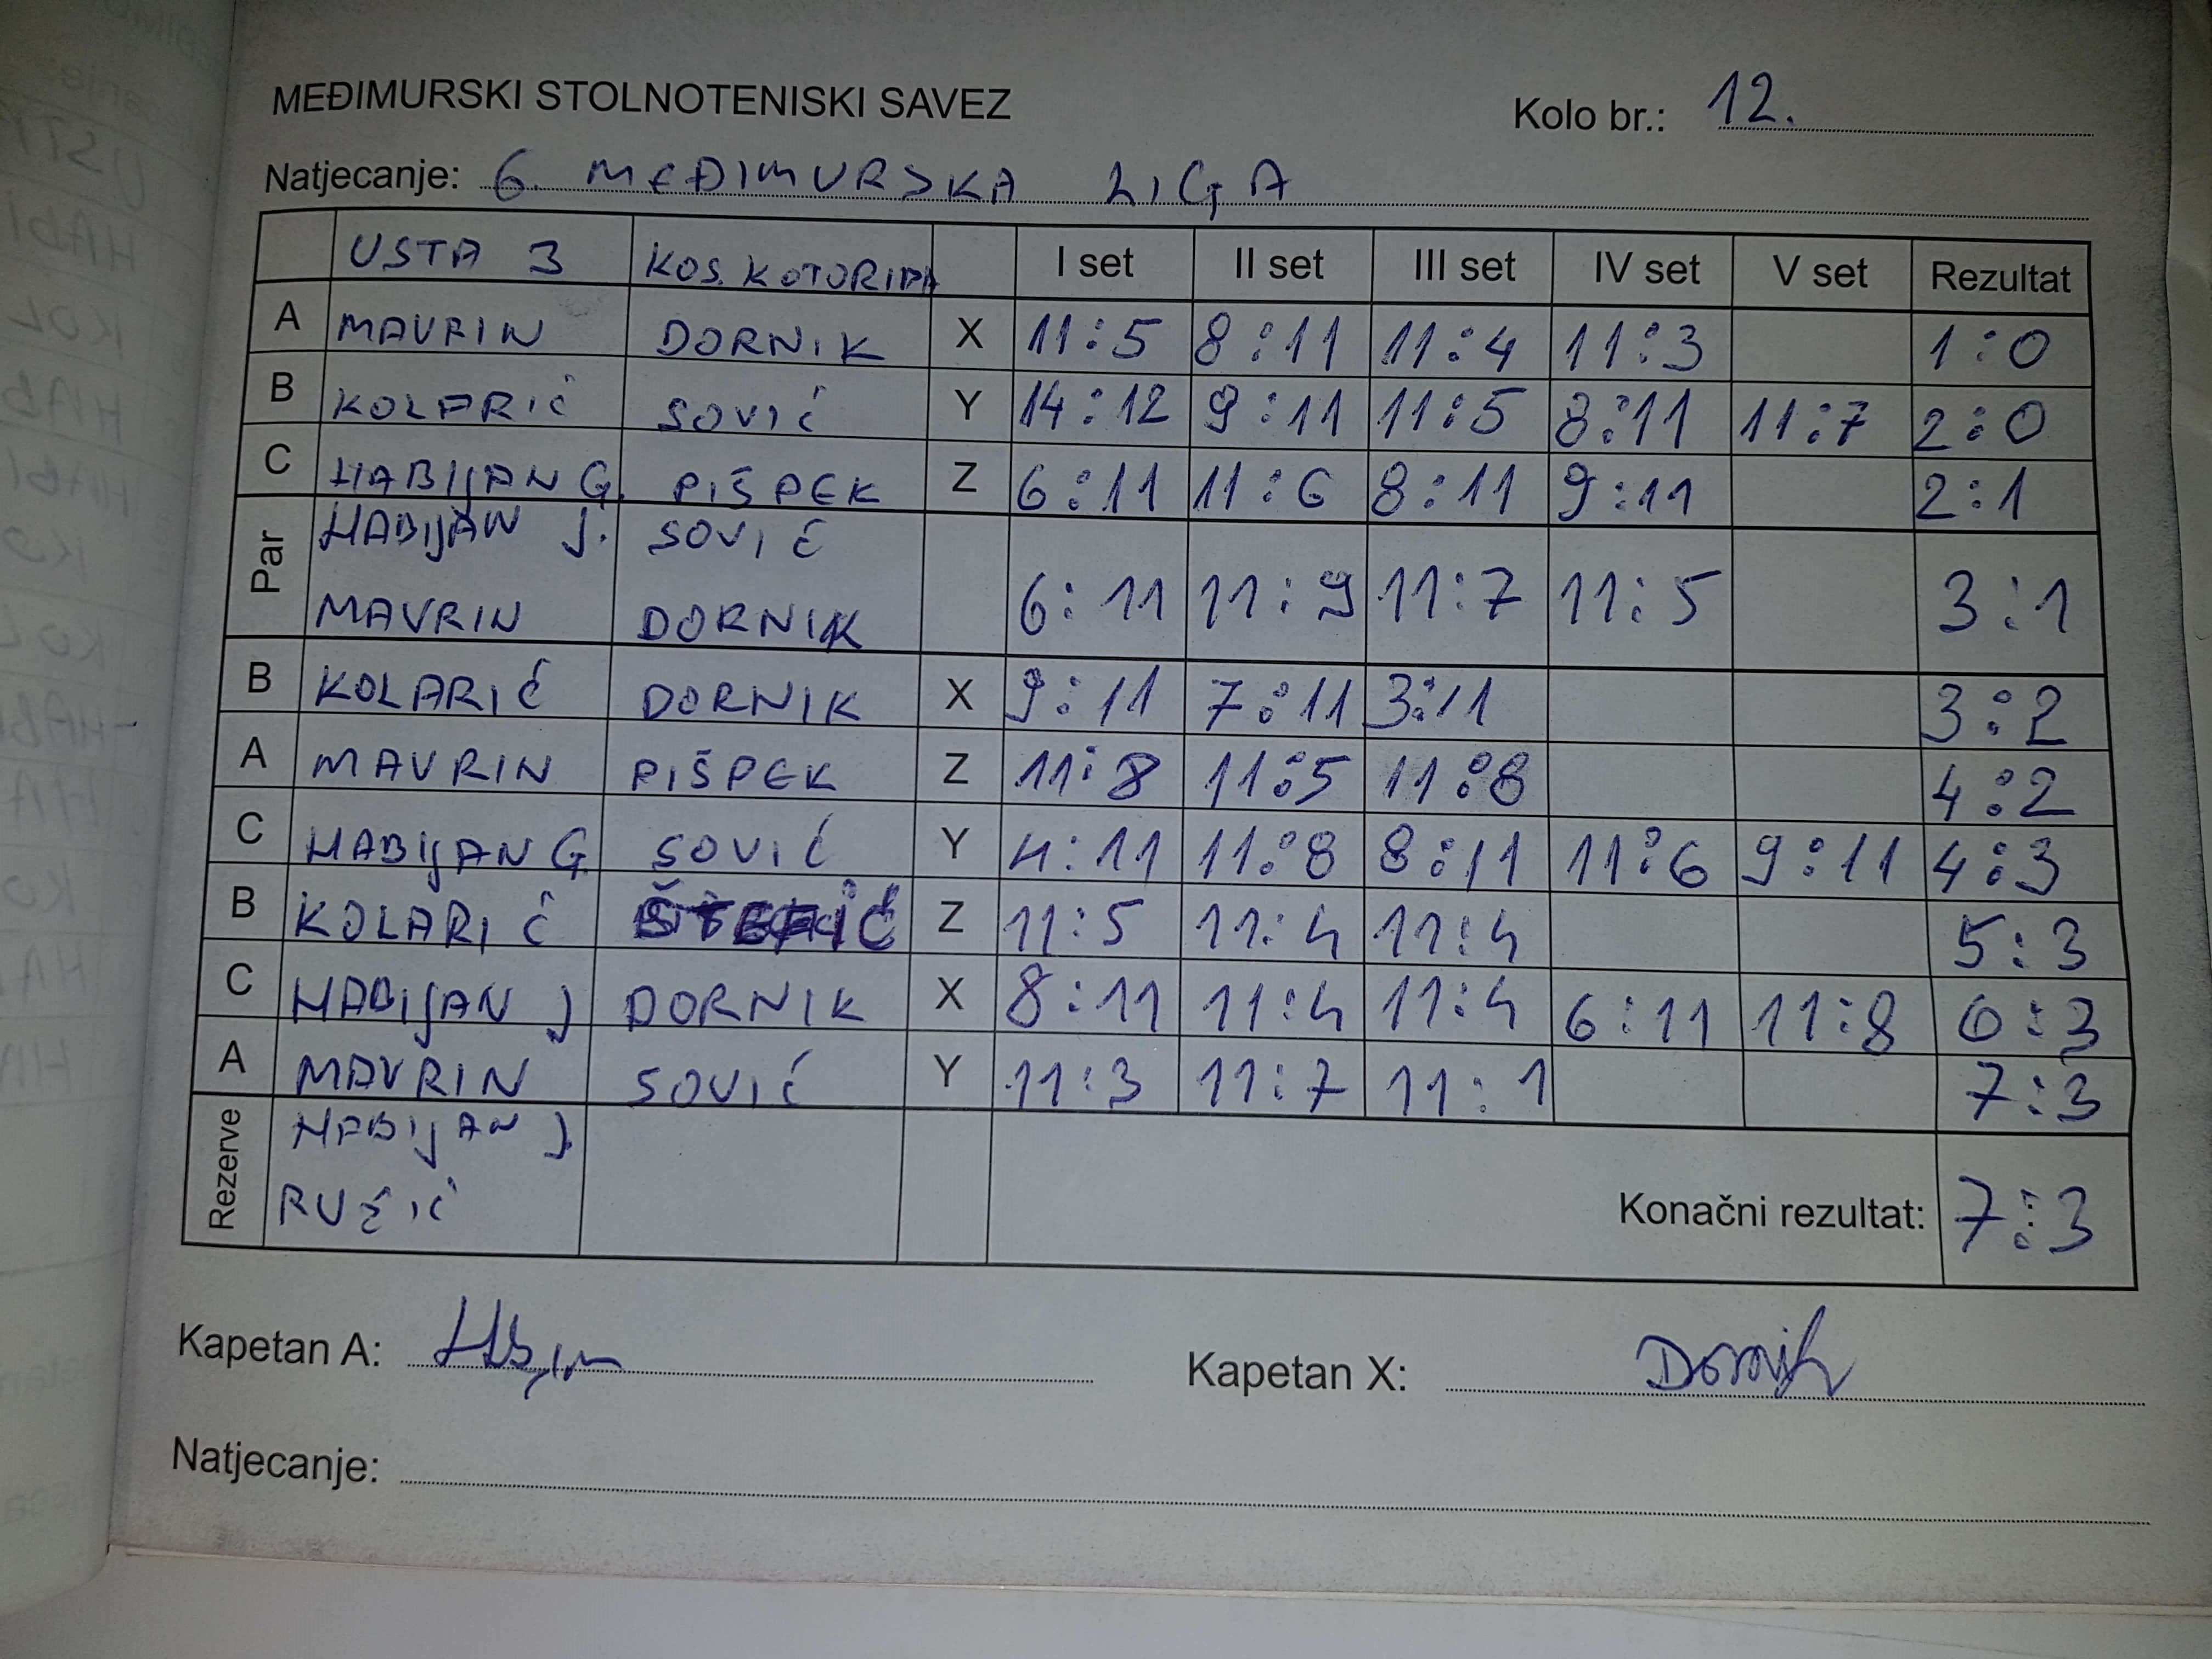 MEĐIMURSKI STOLNOTENISKI SAVEZ Kolo br.: 12.
Natjecanje: 6. MEĐIMURSKA LIGA
USTA 3 KOS. KOTORIBA I set II set III set IV set V set Rezultat
A MAVRIN DORNIK X 11:5 8:11 11:4 11:3 1:0
B KOLARIĆ SOVIĆ Y 14:12 9:11 11:5 8:11 11:7 2:0
C HABIJAN G. PIŠPEK Z 6:11 11:6 8:11 9:11 2:1
Par HABIJAN J. SOVIĆ
MAVRIN DORNIK 6:11 11:9 11:7 11:5 3:1
B KOLARIĆ DORNIK X 9:11 7:11 3:11 3:2
A MAVRIN PIŠPEK Z 11:8 11:5 11:8 4:2
C HABIJAN G. SOVIĆ Y 4:11 11:8 8:11 11:6 9:11 4:3
B KOLARIĆ Z 11:5 11:4 11:4 5:3
C HABIJAN J DORNIK X 8:11 11:4 11:4 6:11 11:8 6:3
A MAVRIN SOVIĆ Y 11:3 11:7 11:1 7:3
Rezerve HABIJAN J.
RUŽIĆ Konačni rezultat: 7:3
Kapetan A: Kapetan X: Dornik
Natjecanje: